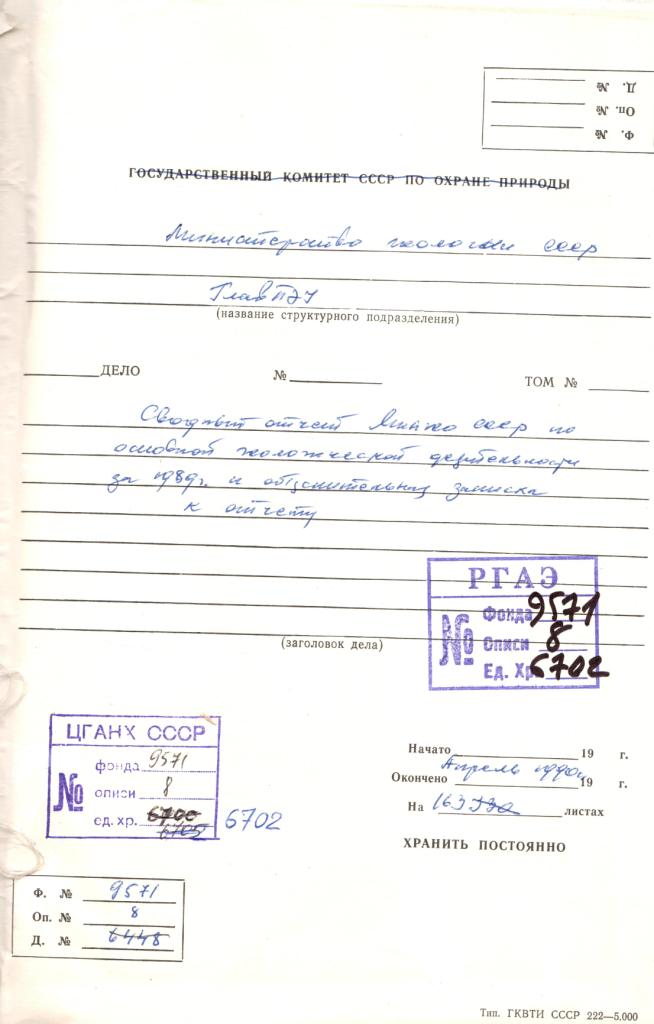 Д. №
Оп. №
Ф. №
ГОСУДАРСТВЕННЫЙ КОМИТЕТ СССР ПО ОХРАНЕ ПРИРОДЫ
Министерство экологии СССР
ГлавПЭУ
(название структурного подразделения)
ДЕЛО № ТОМ №
Сводный отчет СССР по
основной экологической деятельности
за 1989г. и объяснительная записка
к отчету
(заголовок дела)
РГАЭ
№
Фонда 9571
Описи 8
Ед. Хр. 6702
ЦГАНХ СССР
№
фонда 9571
описи 8
ед. хр. 6700 6702
6705
Начато 19 г.
Апрель 1990г.
Окончено 19 г.
На 163 листах
ХРАНИТЬ ПОСТОЯННО
Ф. № 9571
Оп. № 8
Д. № 6448
Тип. ГКВТИ СССР 222—5.000